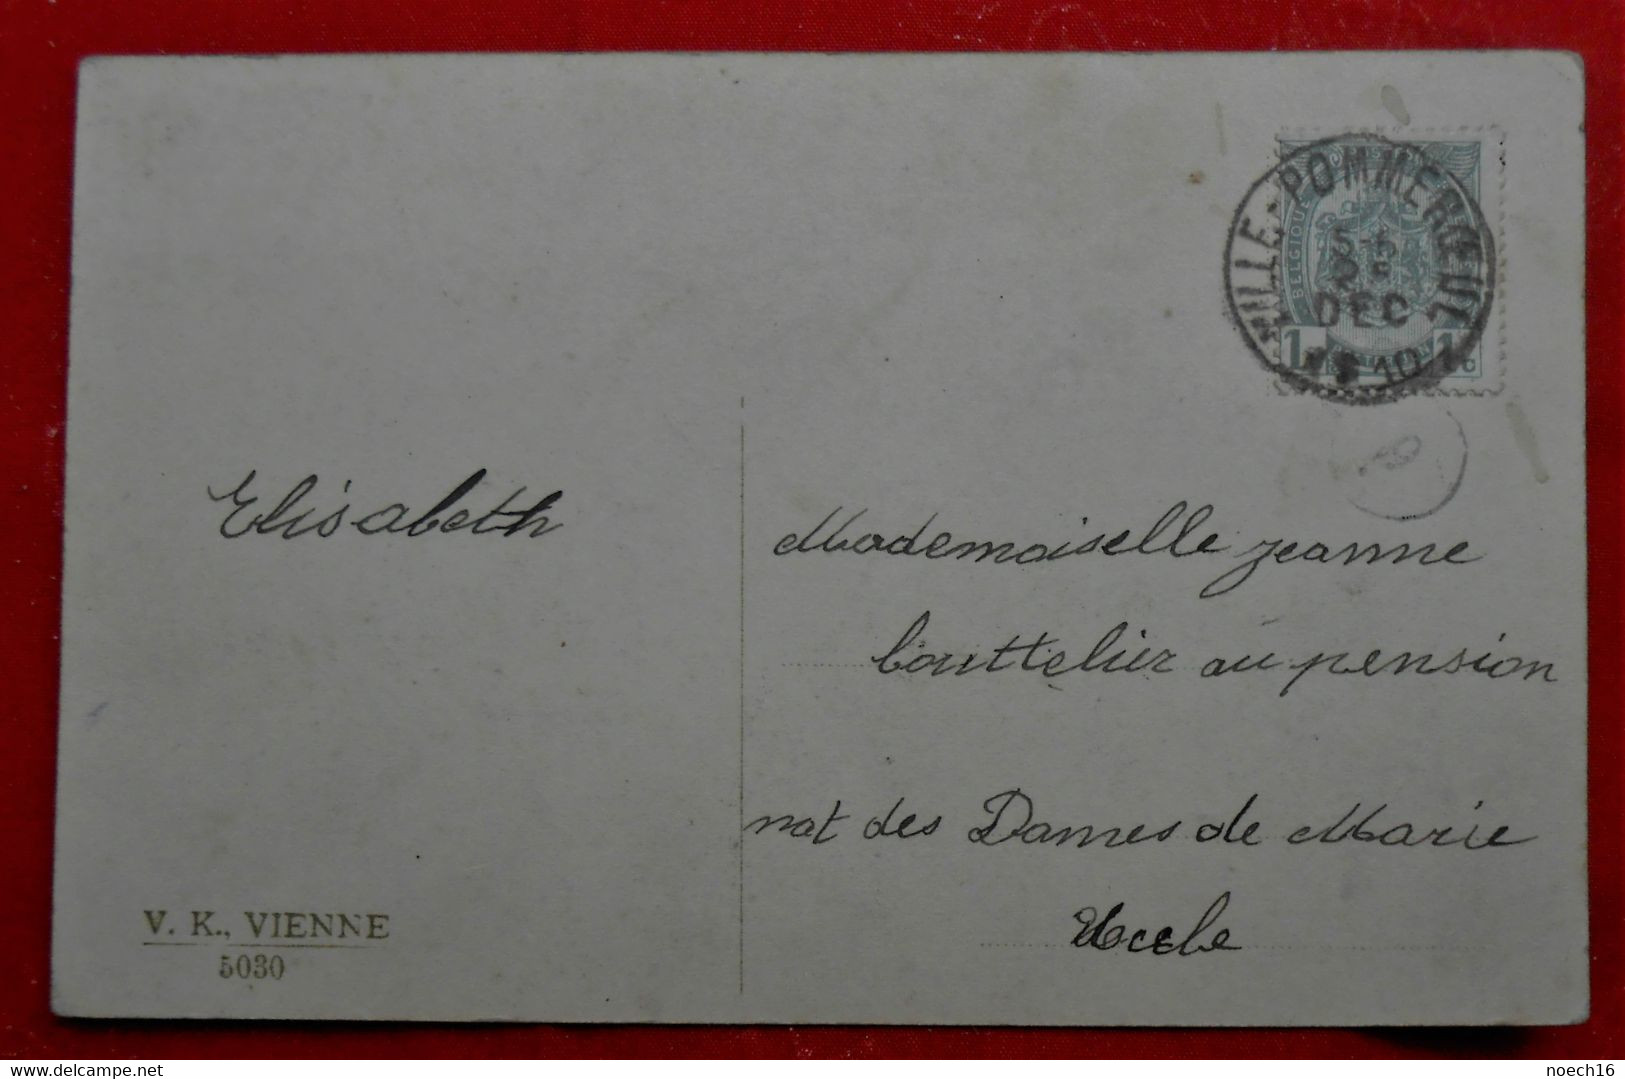 VILLE-POMMERŒUL
5-6
DEC
10
BELGIQUE
1 1
Elisabeth
Mademoiselle Jeanne
Couttelier au pension
nat des Dames de Marie
Uccle
V. K., VIENNE
5030
delcampe.net
noech16